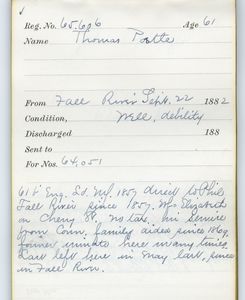 Reg. No. 65,606 Age 61
Name Thomas
From Fall River Sept. 22 1882
Condition, Well, debility
Discharged 188
Sent to
For Nos. 64,051
61 b Eng. Ld. 1857 direct to Phil
Fall River since 1857. Wf. Elizabeth
on Cherry St. No tax, in service
from Conn, family aided since 1869.
former inmate here many times.
Last left here in May last, since
in Fall River.